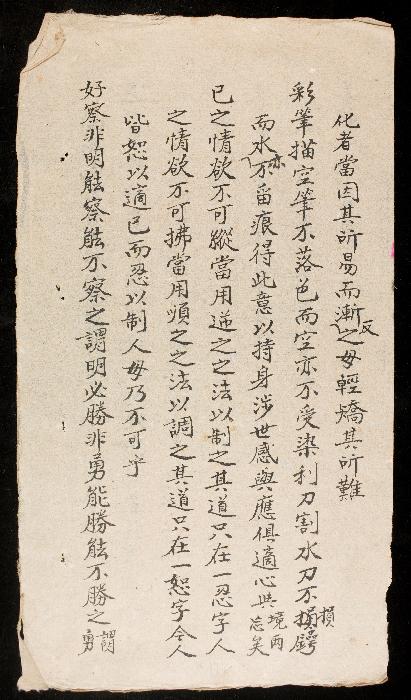 化者當因其所易而漸反之毋輕矯其所難
彩筆描空筆不落色而空亦不受染利刀割水刀不損鍔
而水亦不留痕得此意以持身涉世感與應俱適心與境兩忘矣
己之情欲不可縱當用逆之之法以制之其道只在一忍字人
之情欲不可拂當用順之之法以調之其道只在一恕字今人
皆恕以適己而忍以制人毋乃不可乎
好察非明能察能不察之謂明必勝非勇能勝能不勝之謂勇